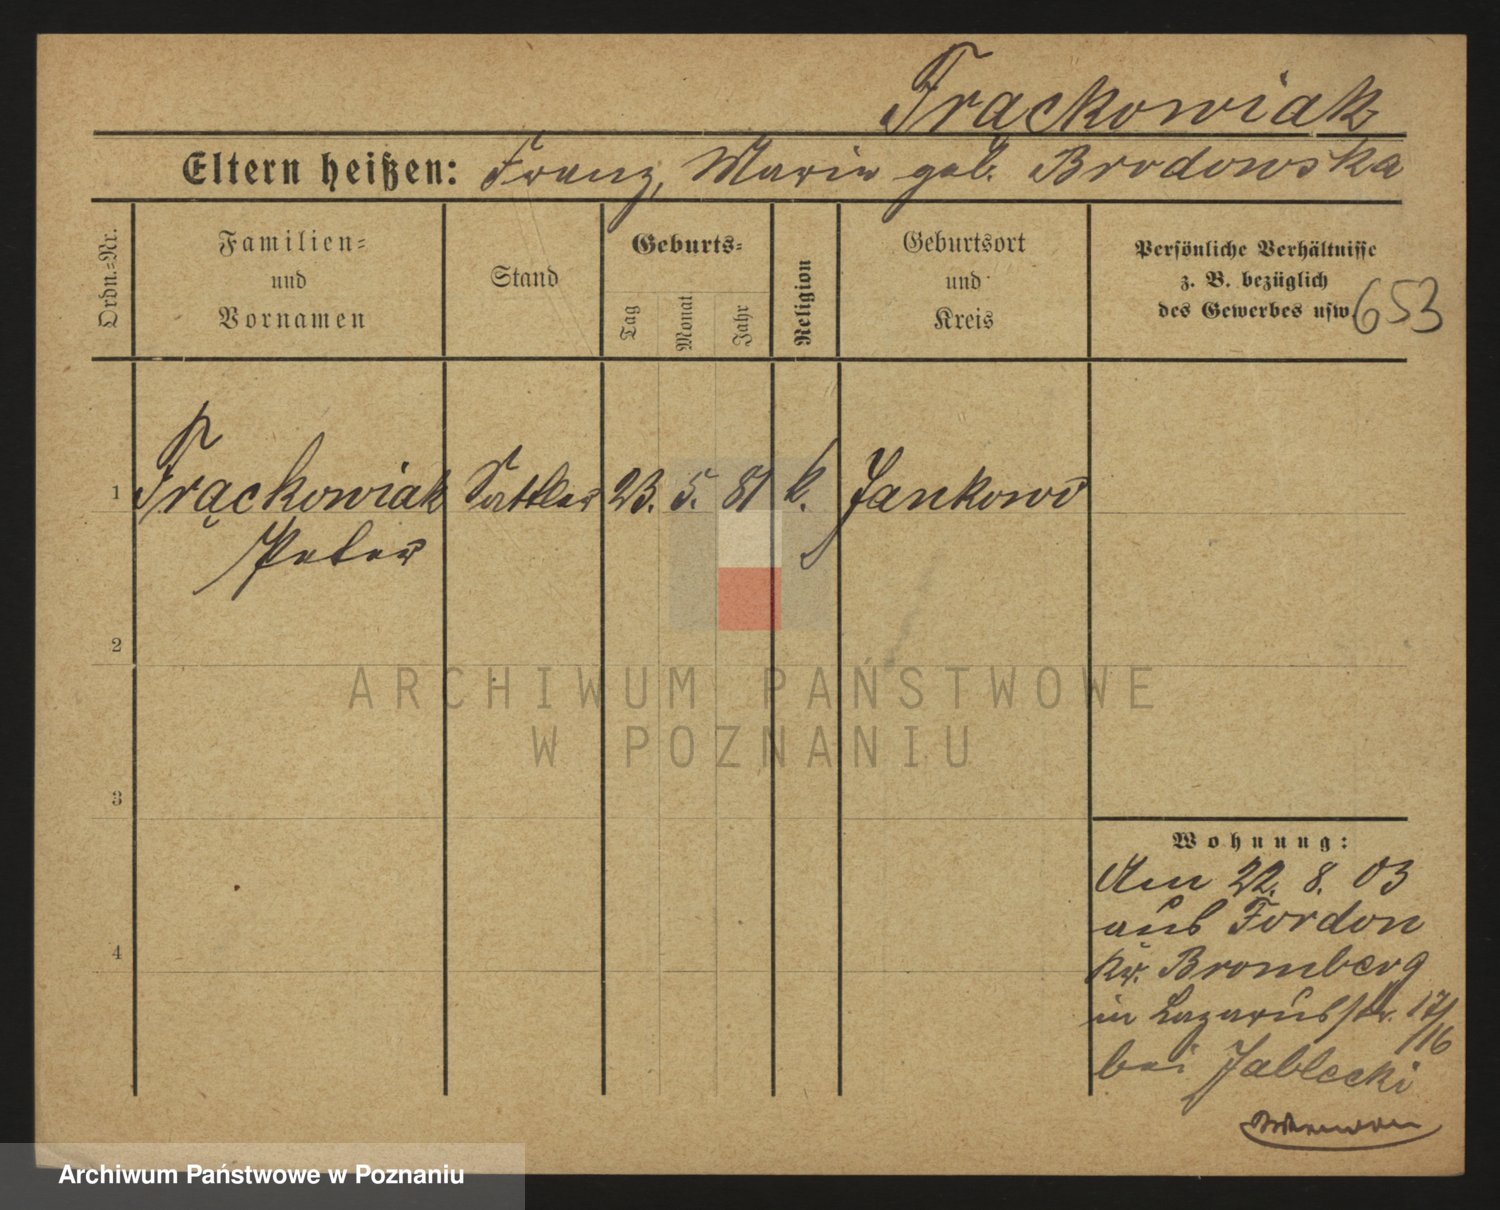 Frąckowiak
Eltern heißen: Franz, Maria geb. Brodowska
Ordn.-Nr.
Familien-
und
Vornamen
Stand
Geburts-
Tag
Monat
Jahr
Religion
Geburtsort
und
Kreis
Persönliche Verhältnisse
z. B. bezüglich
des Gewerbes usw.
653
1 Frąckowiak Sattler 23. 5. 81 k. Jankowo
Peter
2
3
4
ARCHIWUM PAŃSTWOWE
W POZNANIU
Wohnung:
Am 22. 8. 03
aus Fordon
Kr. Bromberg
in Lazarusstr. 17/
16
bei Jablecki
Archiwum Państwowe w Poznaniu